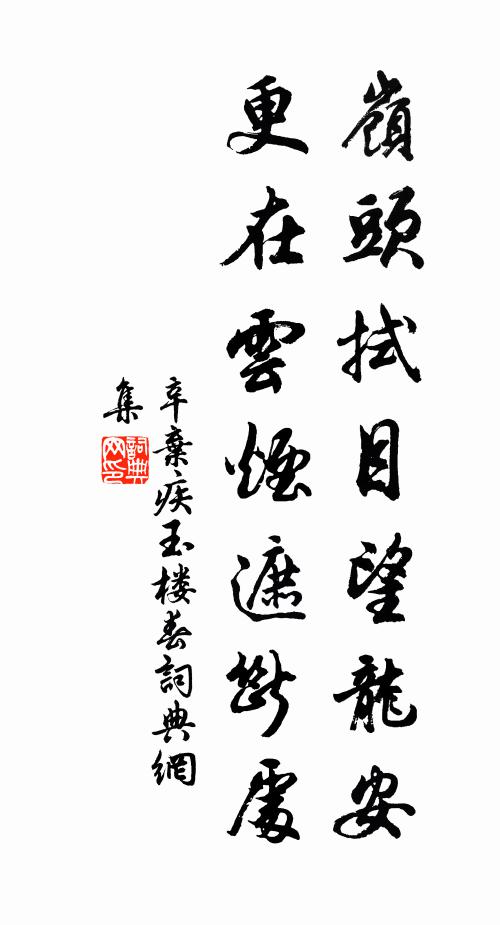 嶺頭拭目望龍安
更在雲煙遮斷處
辛棄疾玉楼春詞典網
集
詞典網印